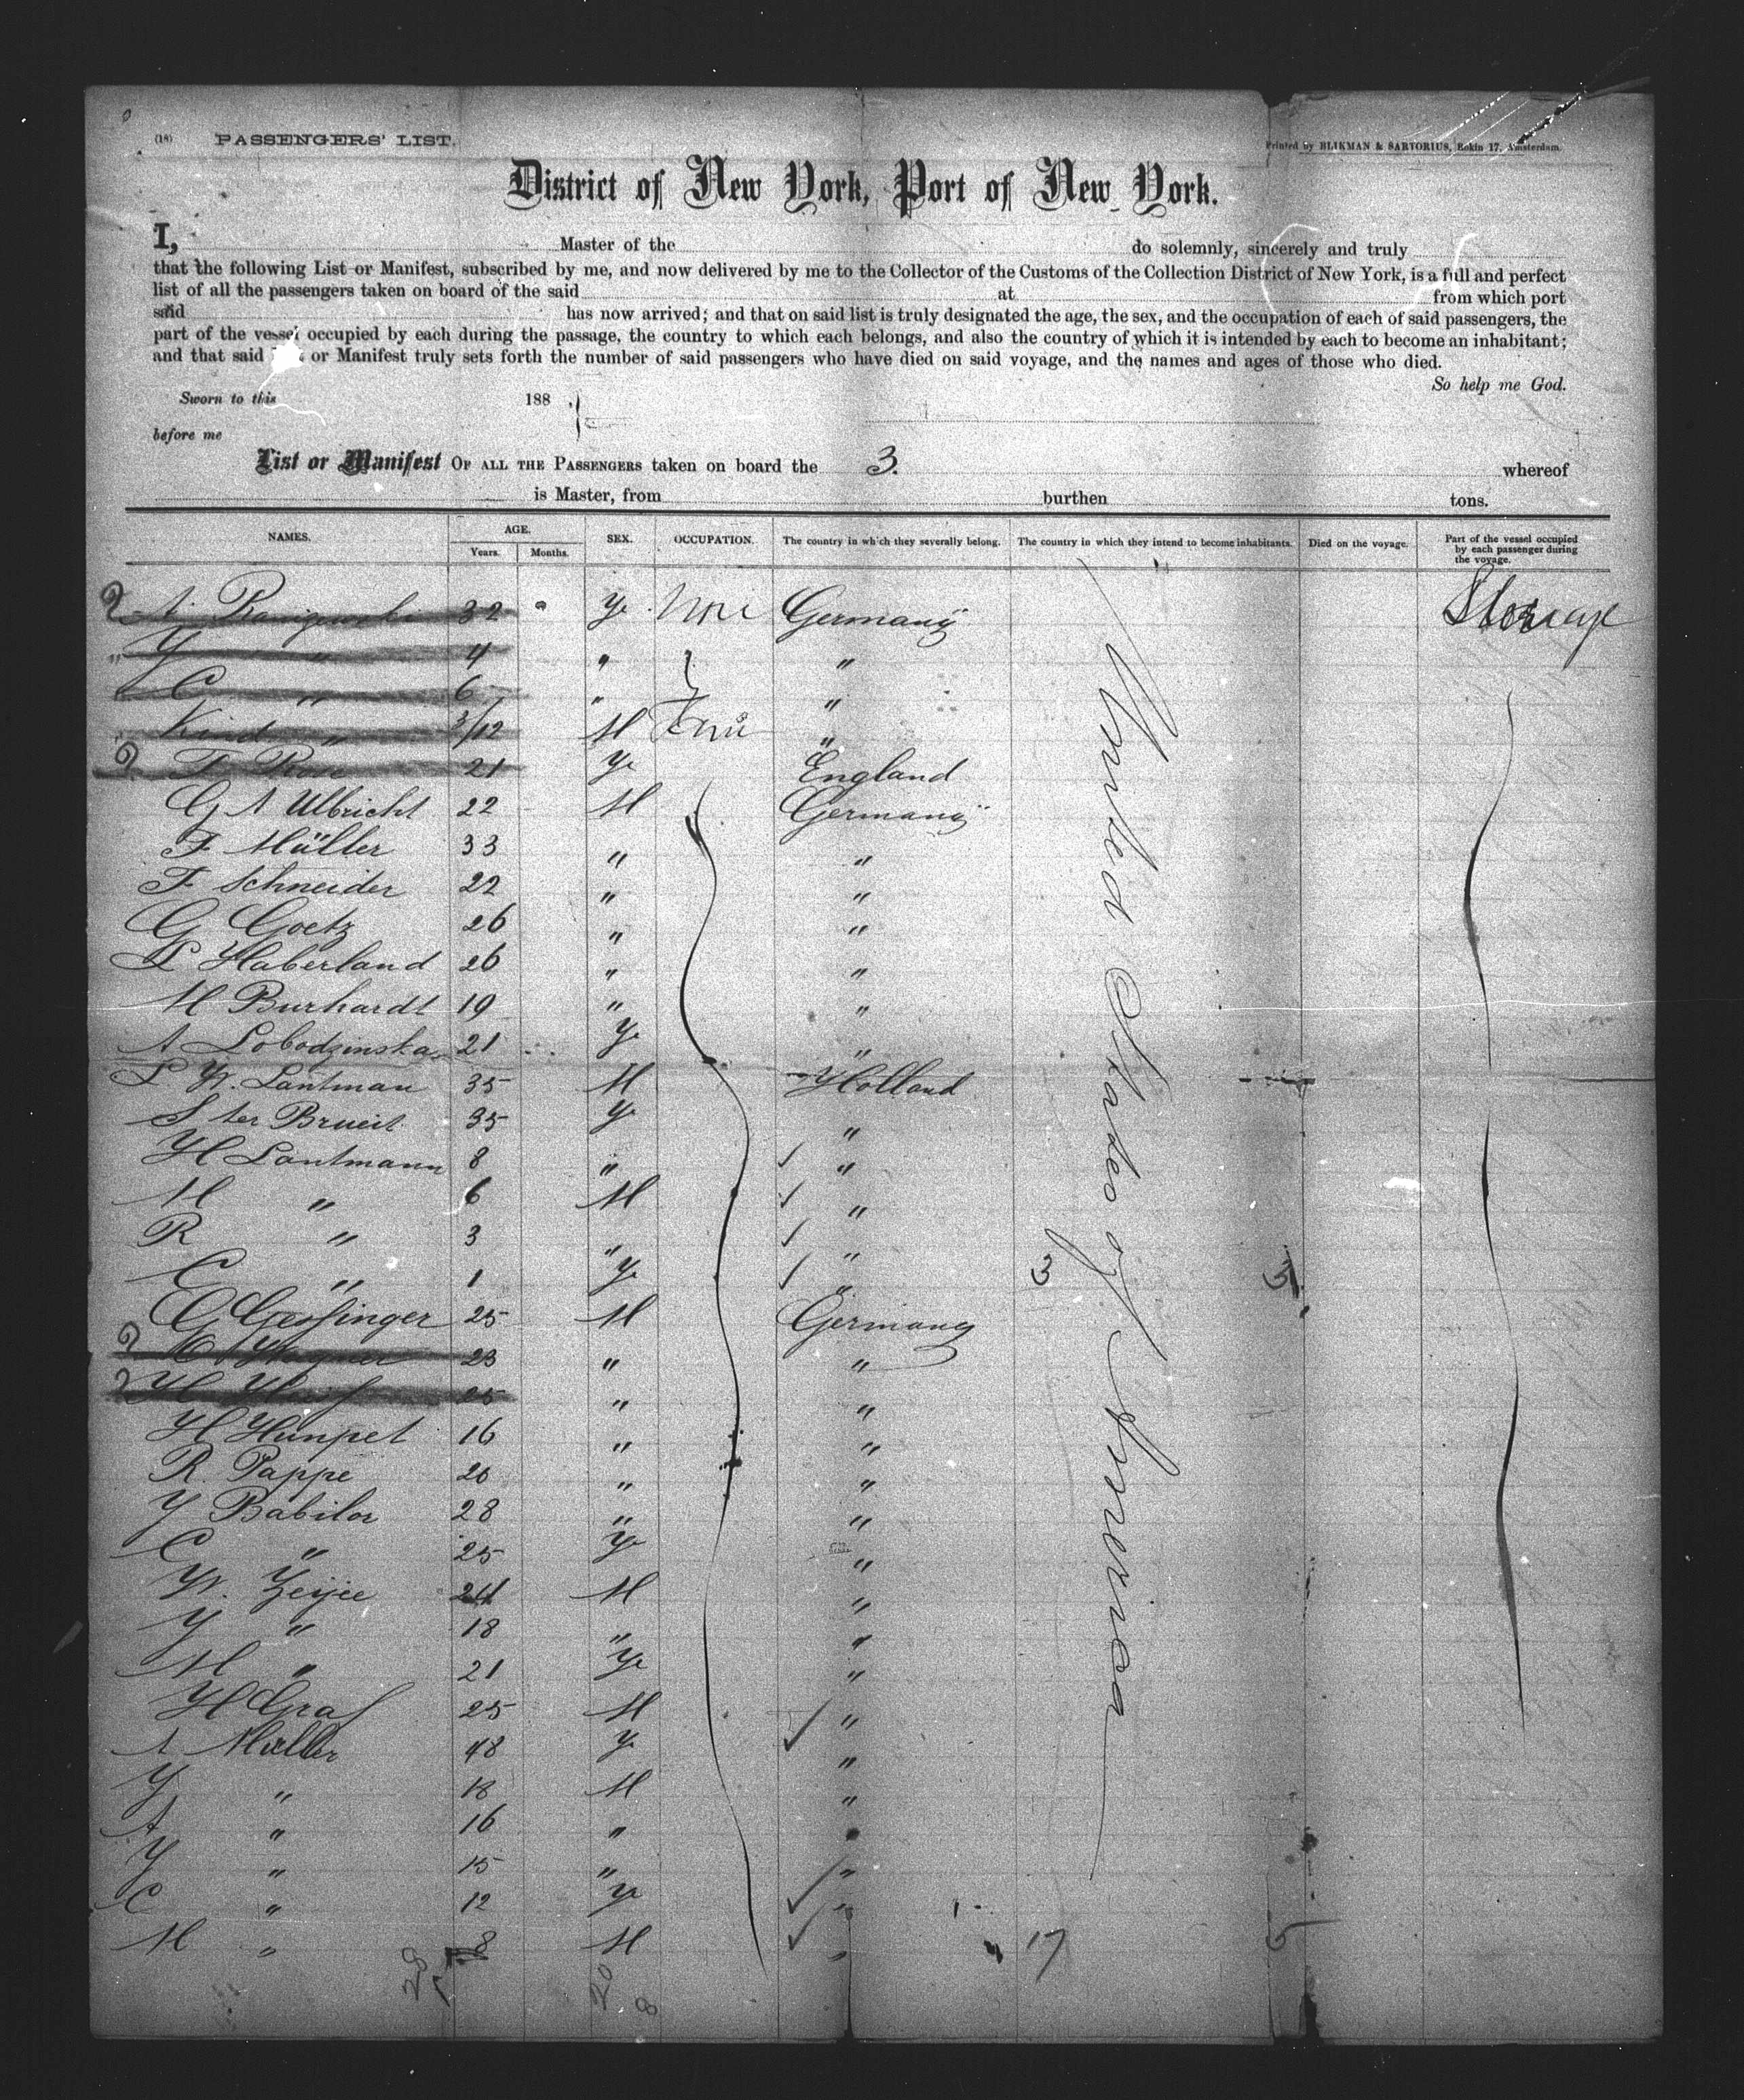 (18) PASSENGERS' LIST. Printed by BLIKMAN & SARTORIUS, Rokin 17, Amsterdam.
District of New York, Port of New York.
I, Master of the do solemnly, sincerely and truly
that the following List or Manifest, subscribed by me, and now delivered by me to the Collector of the Customs of the Collection District of New York, is a full and perfect
list of all the passengers taken on board of the said at from which port
said has now arrived; and that on said list is truly designated the age, the sex, and the occupation of each of said passengers, the
part of the vessel occupied by each during the passage, the country to which each belongs, and also the country of which it is intended by each to become an inhabitant;
and that said or Manifest truly sets forth the number of said passengers who have died on said voyage, and the names and ages of those who died.
So help me God.
Sworn to this 188
before me
List or Manifest OF ALL THE PASSENGERS taken on board the 3. whereof
is Master, from burthen tons.
NAMES. AGE. Years. Months. SEX. OCCUPATION. The country in which they severally belong. The country in which they intend to become inhabitants. Died on the voyage. Part of the vessel occupied by each passenger during the voyage.
A. 32 Ye Germany Steerage
Y " 4 " "
C " 6 " "
Kind " 3/12 M "
F Rose 21 Ye England
G A Ulbricht 22 M Germany
F Müller 33 " "
F Schneider 22 " "
G Goetz 26 " "
L Haberland 26 " "
M Burhardt 19 " "
A Lobodzinska 21 Ye "
L W. Lantman 35 M Holland
S ter Brueit 35 Ye "
H Lantmann 8 " "
M " 6 M "
R " 3 " "
C " 1 Ye " 3
G Gessinger 25 M Germany
C Wagner 23 " "
H 25 " "
H Humpel 16 " "
R. Pappe 26 " "
Y Babilon 28 " "
C " 25 Ye "
W. Zeijee 24 M "
Y " 18 " "
M " 21 Ye "
H Graf 25 M "
A Müller 48 Ye "
Y " 18 M "
A " 16 "
Y " 15 " "
C " 12 Ye "
M " 8 M " 17
United States of America
28 20
8